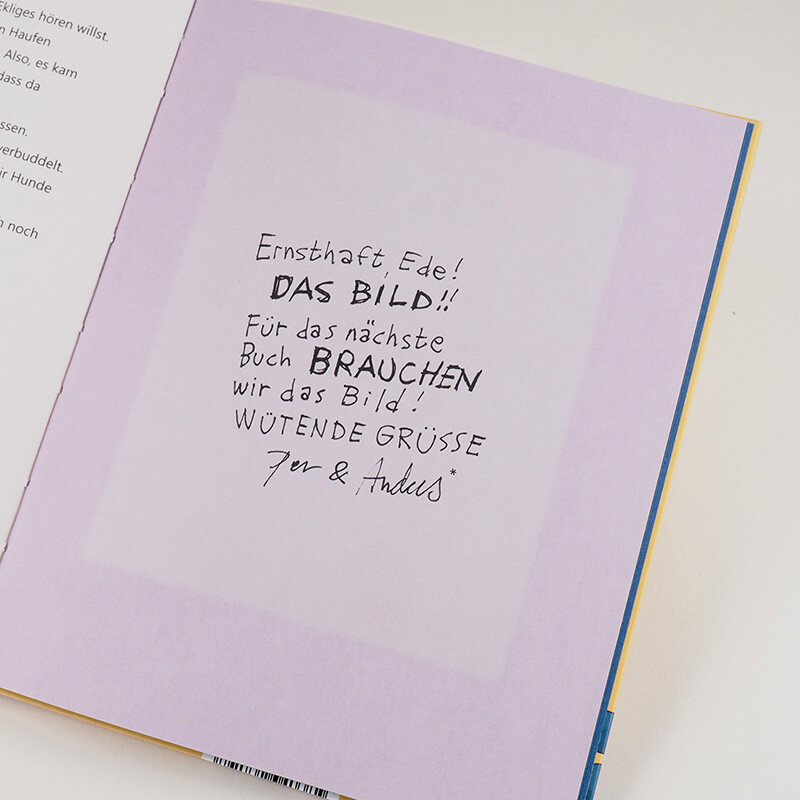 Ekliges hören willst.
Haufen
Also, es kam
dass da
verbuddelt.
Hunde
noch
Ernsthaft, Ede!
DAS BILD!!
Für das nächste
Buch BRAUCHEN
wir das Bild!
WÜTENDE GRÜSSE
Per & Anders*